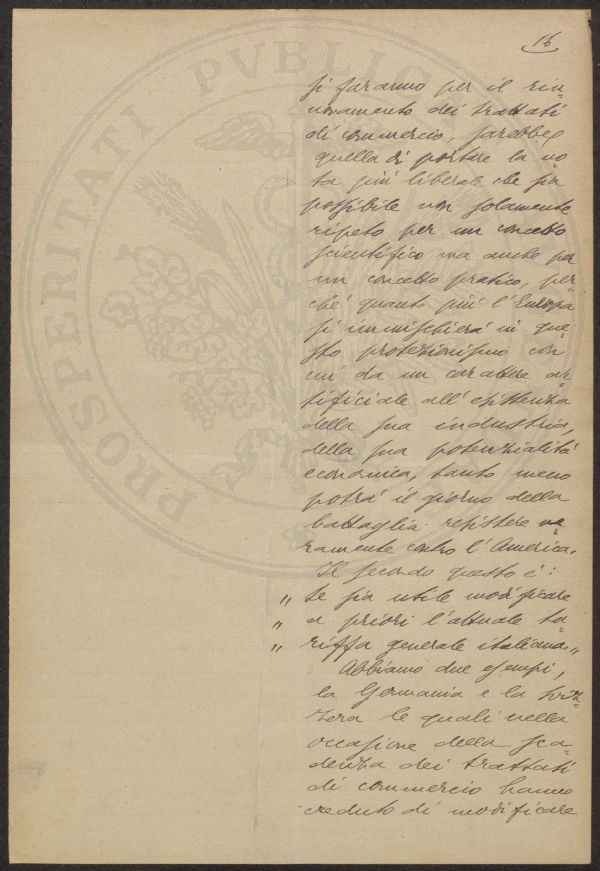 16
si faranno per il rin-
novamento dei trattati
di commercio, sarebbe
quella di portare la no
ta più liberale che sia
possibile non solamente
ripeto per un concetto
scientifico ma anche per
un concetto pratico, per-
chè quanto più l'Europa
si immischierà in que-
sto protezionismo con
cui da un carattere ar-
tificiale all'esistenza
della sua industria,
della sua potenzialità
economica, tanto meno
potrà il giorno della
battaglia resistere ve-
ramente contro l'America.
Il secondo quesito è:
" Se sia utile modificare
" a priori l'attuale ta-
" riffa generale italiana. "
Abbiamo due esempi,
la Germania e la Sviz-
zera le quali nella
occasione della sca-
denza dei trattati
di commercio hanno
creduto di modificare
PROSPERITATI PVBLIC